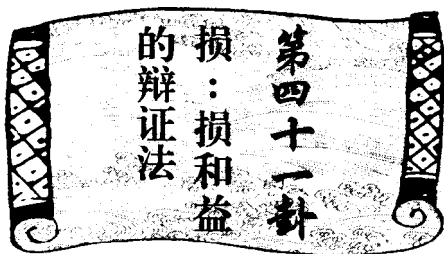 第四十一卦
损：损和益
的辩证法